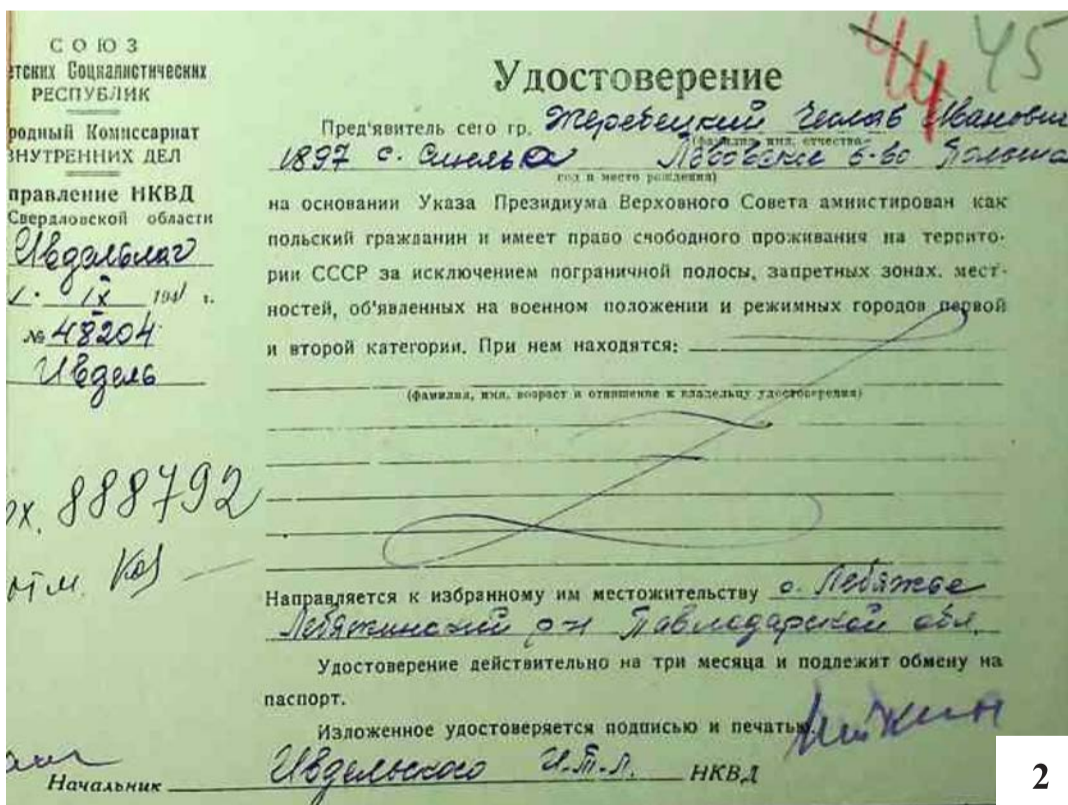 СОЮЗ
етских Социалистических
РЕСПУБЛИК
родный Комиссариат
ВНУТРЕННИХ ДЕЛ
правление НКВД
Свердловской области
Ивдельлаг
IX 1941 г.
№ 48204
Ивдель
рх. 888792
отм.
44 45
Удостоверение
Пред'явитель сего гр. Жеребецкий Чеслав Иванович
(фамилия, имя, отчество
1897 с. Львовское в-во Польша
год и место рождения)
на основании Указа Президиума Верховного Совета амнистирован как
польский гражданин и имеет право свободного проживания на террито-
рии СССР за исключением пограничной полосы, запретных зонах. мест-
ностей, об'явленных на военном положении и режимных городов первой
и второй категории. При нем находятся:
(фамилия, имя, возраст и отношение к владельцу удостоверения)
Направляется к избранному им местожительству с. Лебяжье
Лебяжинский р-н Павлодарской обл.
Удостоверение действительно на три месяца и подлежит обмену на
паспорт.
Изложенное удостоверяется подписью и печатью.
Начальник Ивдельского И.Т.Л. НКВД
2